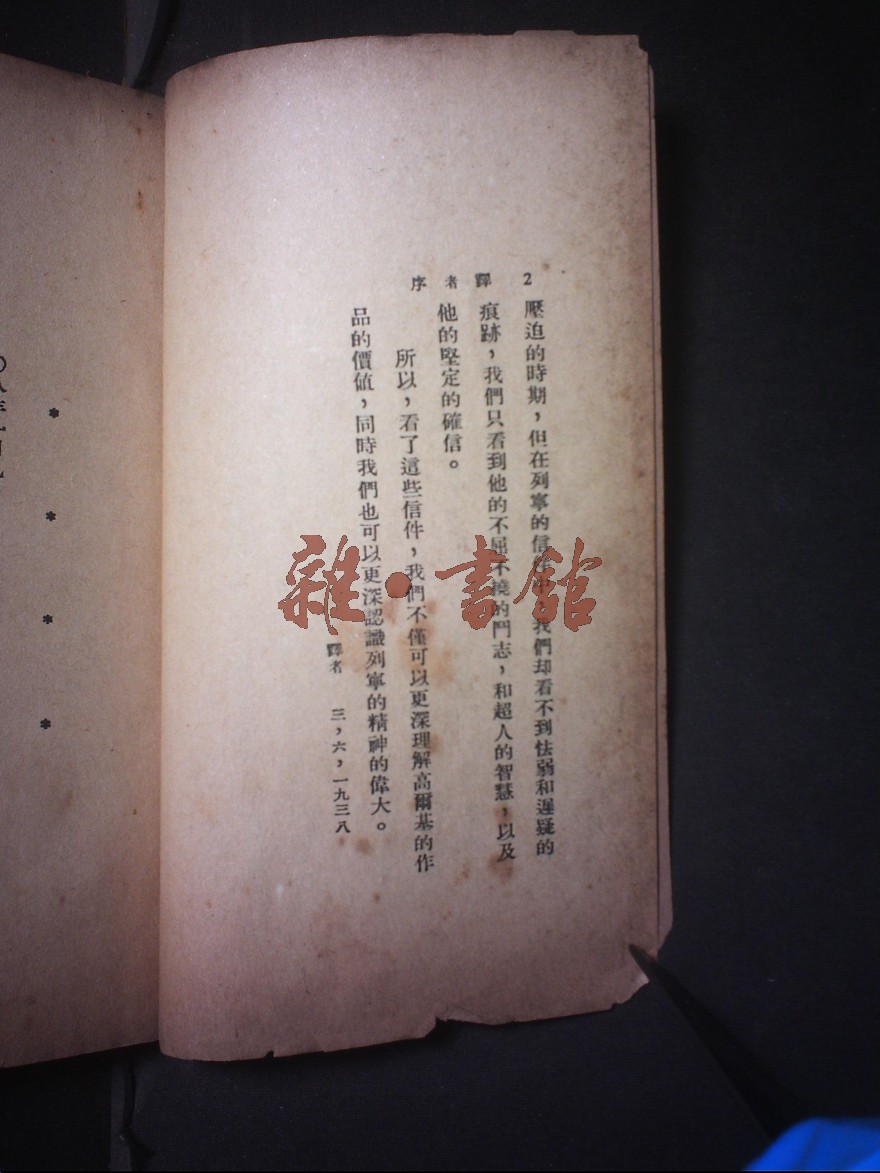 2 譯者序
壓迫的時期，但在列寧的信件中，我們却看不到怯弱和遲疑的
痕跡，我們只看到他的不屈不撓的鬥志，和超人的智慧，以及
他的堅定的確信。
所以，看了這些信件，我們不僅可以更深理解高爾基的作
品的價值，同時我們也可以更深認識列寧的精神的偉大。
譯者 三，六，一九三八
雜·書館
* * * *